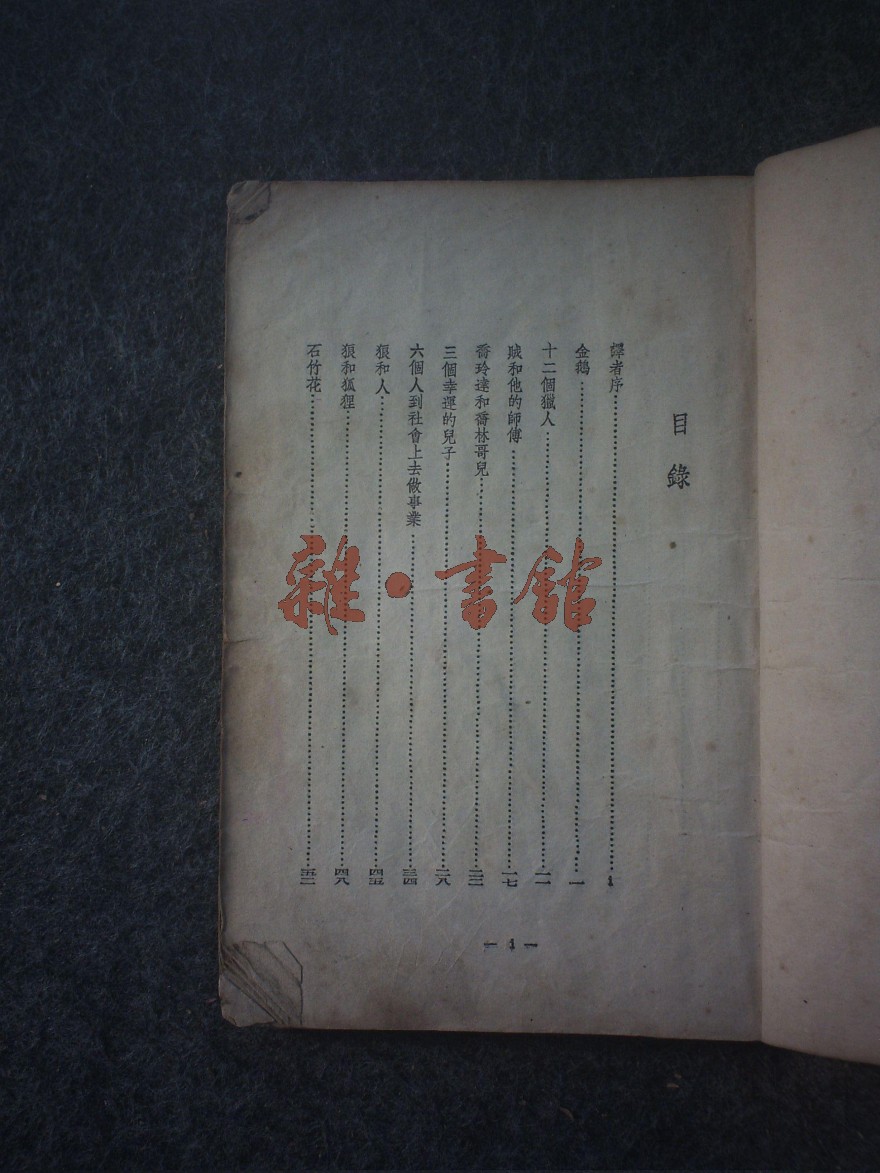 目錄
譯者序……1
金鵝……一
十二個獵人……一一
賊和他的師傅……一七
喬玲達和喬林哥兒……二三
三個幸運的兒子……二八
六個人到社會上去做事業……三四
狼和人……四五
狼和狐狸……四八
石竹花……五三
— 1 —
雜·書館